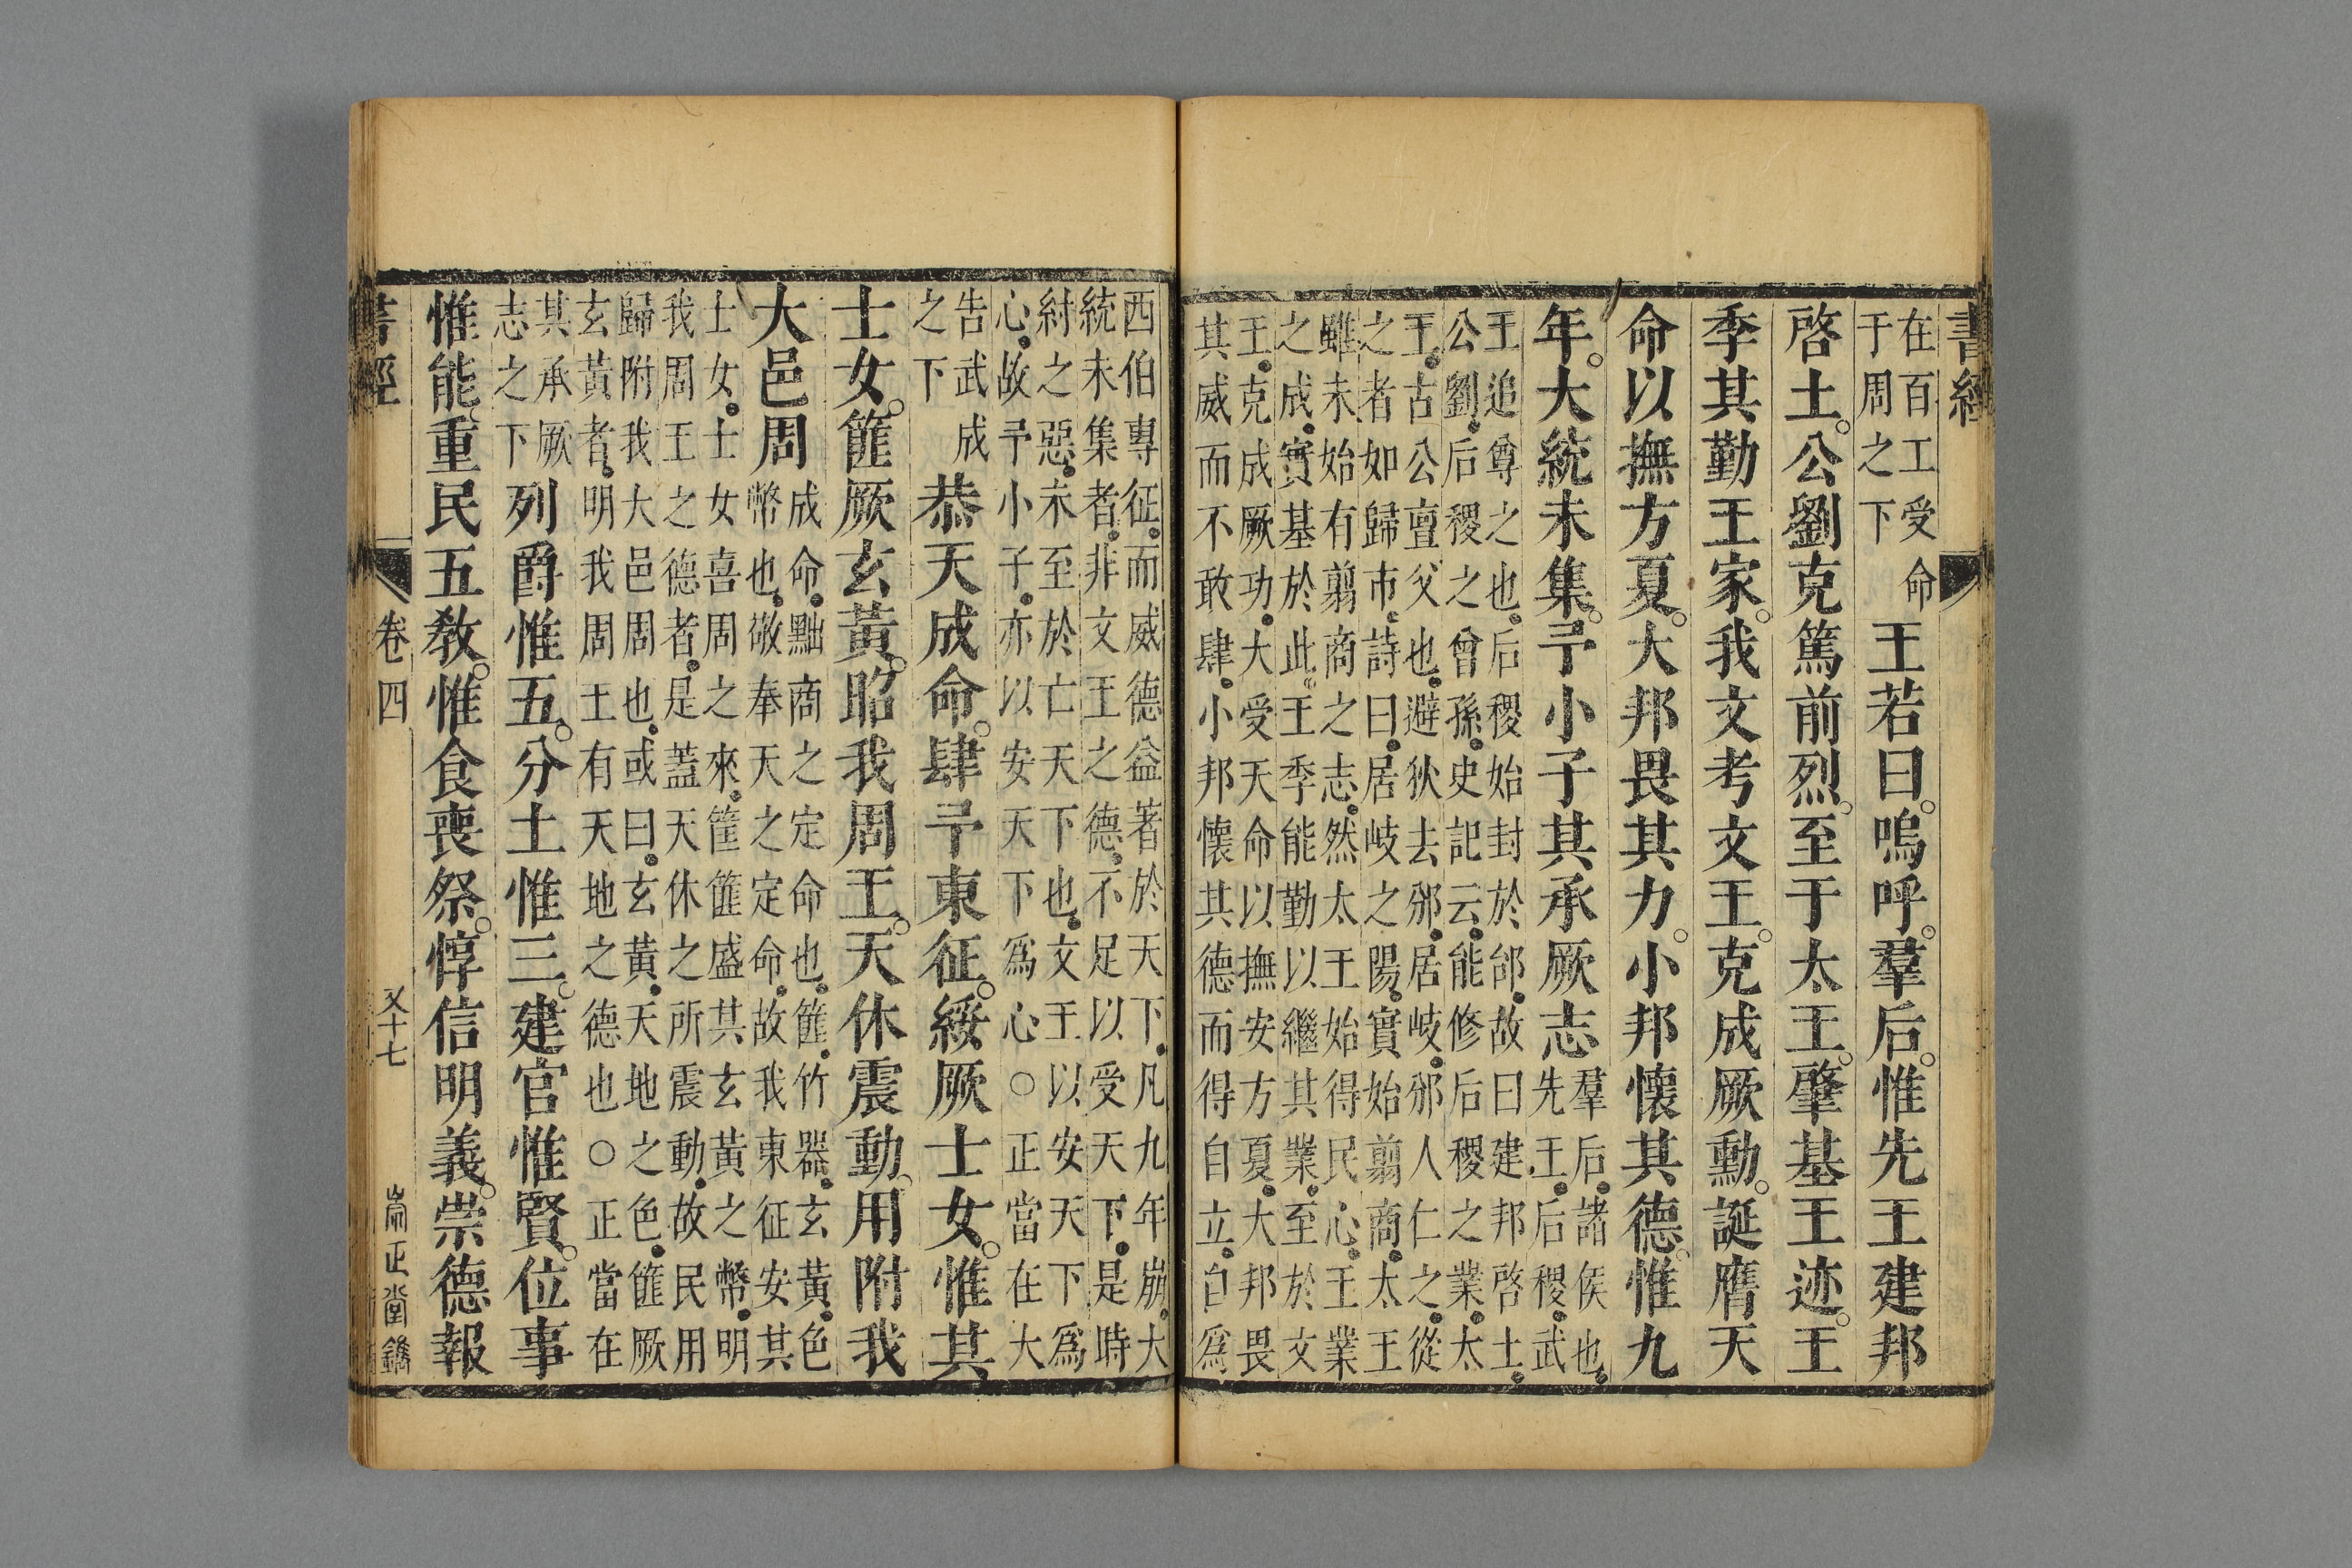 書經
在百工受命
于周之下
王若曰。嗚呼。羣后。惟先王建邦
啓土。公劉克篤前烈。至于太王。肇基王迹。王
季其勤王家。我文考文王。克成厥勳。誕膺天
命以撫方夏。大邦畏其力。小邦懷其德。惟九
年。大統未集。予小子其承厥志
羣后。諸侯也。
先王。后稷。武
王追尊之也。后稷始封於邰。故曰建邦啓土。
公劉。后稷之曾孫。史記云。能修后稷之業。太
王。古公亶父也。避狄去邠。居岐。邠人仁之。從
之者如歸市。詩曰。居岐之陽。實始翦商。太王
雖未始有翦商之志。然太王始得民心。王業
之成。實基於此。王季能勤以繼其業。至於文
王。克成厥功。大受天命以撫安方夏。大邦畏
其威而不敢肆。小邦懷其德而得自立。自為
西伯專征。而威德益著於天下。凡九年崩。大
統未集者。非文王之德。不足以受天下。是時
紂之惡。未至於亡天下也。文王以安天下為
心。故予小子。亦以安天下為心○正當在大
告武成
之下
恭天成命。肆予東征。綏厥士女。惟其
士女。篚厥玄黃。昭我周王。天休震動。用附我
大邑周
成命。黜商之定命也。篚。竹器。玄黃。色
幣也。敬奉天之定命。故我東征安其
士女。士女喜周之來。筐篚盛其玄黃之幣。明
我周王之德者。是蓋天休之所震動。故民用
歸附我大邑周也。或曰。玄黃。天地之色。篚厥
玄黃者。明我周王有天地之德也○正當在
其承厥
志之下
列爵惟五。分土惟三。建官惟賢。位事
惟能。重民五教。惟食喪祭。惇信明義。崇德報
書經
卷四
又十七
崇正堂鐫